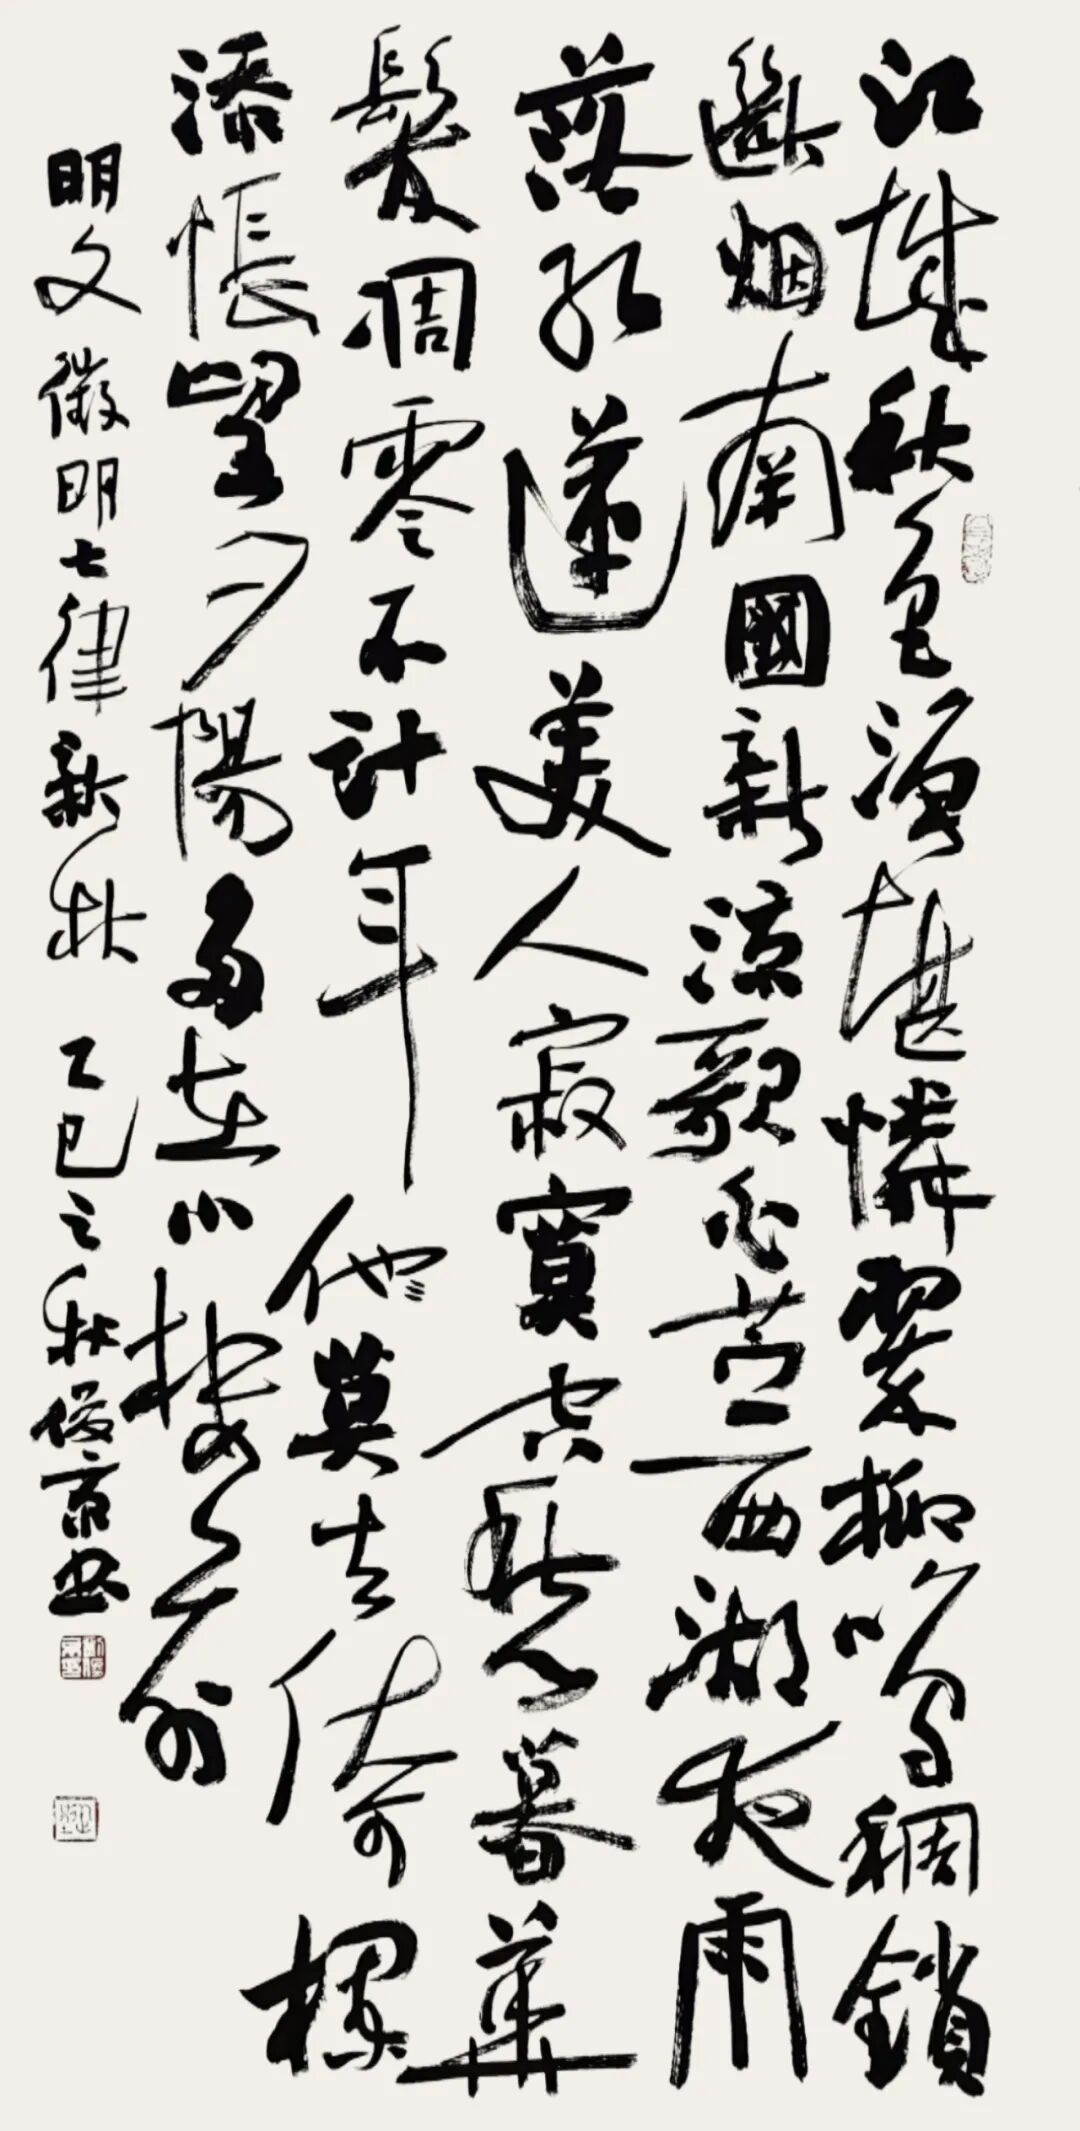 江城秋色淨堪憐翠柳鳴蜩鎖
斷烟南國新涼歌白苧西湖夜雨
落紅蓮美人寂寞空愁暮華
髮凋零不計年他莫去倚欄
添悵望夕陽多在小樓前
明文徵明七律新秋 乙巳之秋俊京书